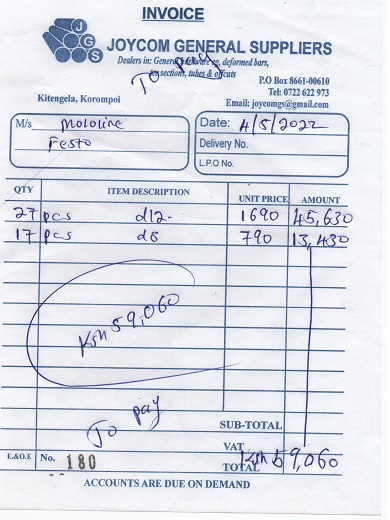 INVOICE
JGS
JOYCOM GENERAL SUPPLIERS
Dealers in: General hardware eg, deformed bars,
sections, tubes & offcuts
To pay
P.O Box 8661-00610
Tel: 0722 622 973
Kitengela, Korompoi
Email: joycomgs@gmail.com
M/s Mololine
Festo
Date: 4/5/2022
Delivery No.
L.P.O No.
QTY ITEM DESCRIPTION UNIT PRICE AMOUNT
27 pcs d12- 1690 45,630
17 pcs d8 790 13,430
Ksh 59,060
To pay
SUB-TOTAL
VAT
E.&O.E No. 180 TOTAL Ksh 59,060
ACCOUNTS ARE DUE ON DEMAND